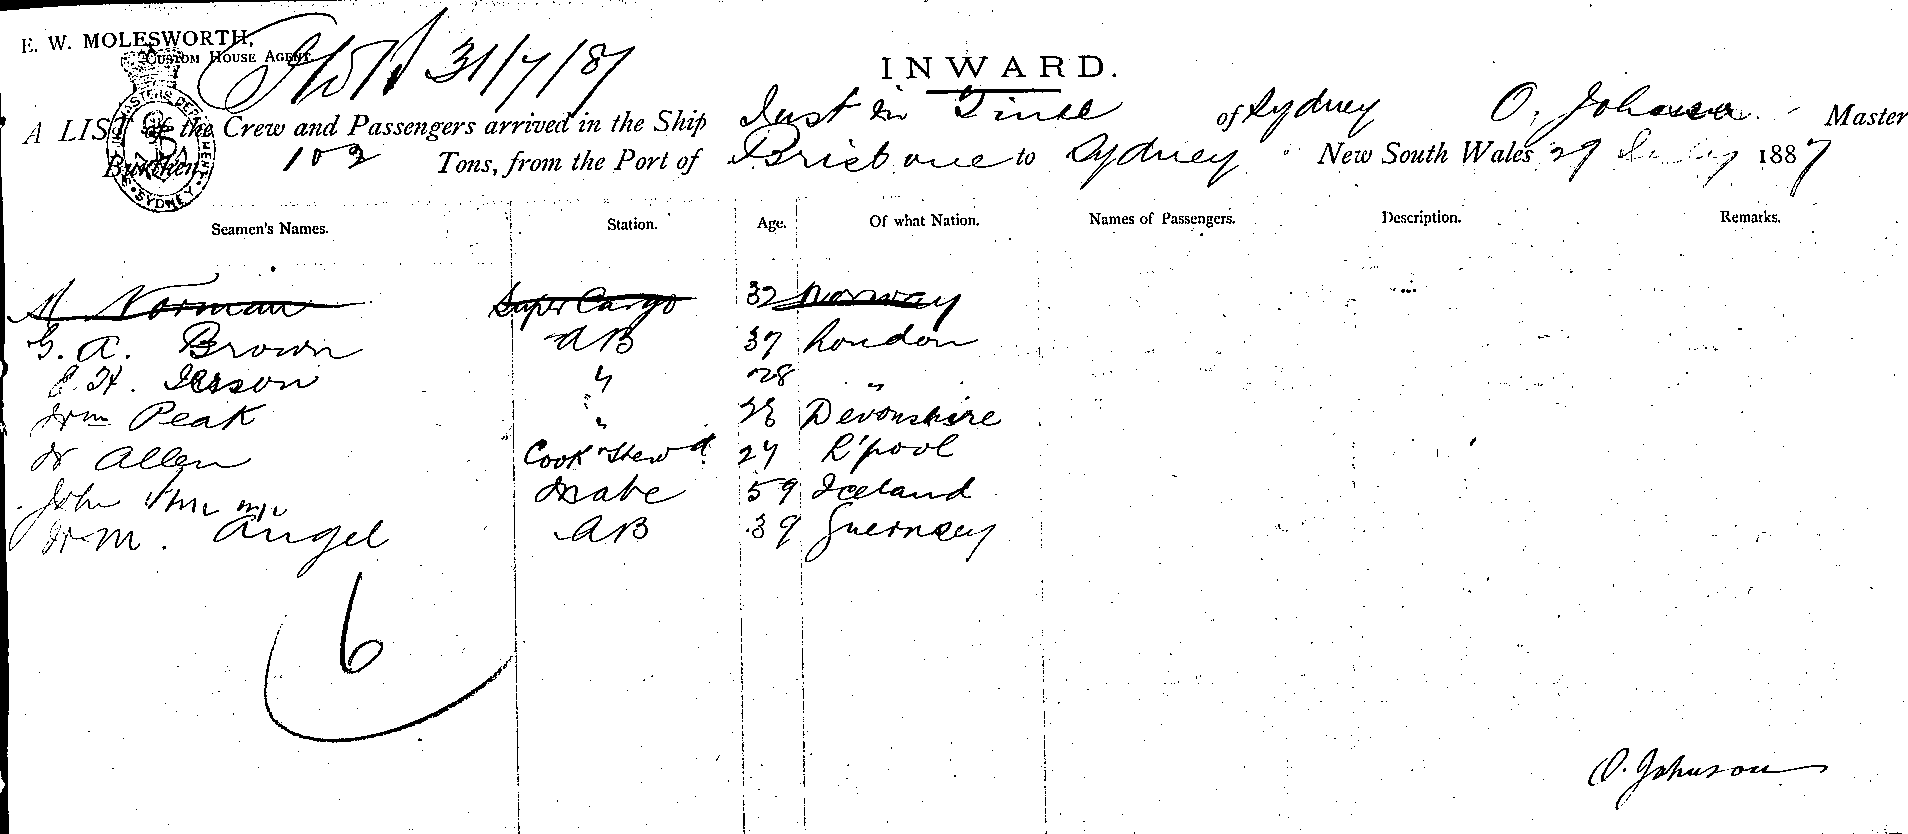 E. W. MOLESWORTH,
CUSTOM HOUSE AGENT
31/7/87
INWARD.
A LIST of the Crew and Passengers arrived in the Ship Just in Time of Sydney O. Johnson Master
Burthen 102 Tons, from the Port of Brisbane to Sydney New South Wales 29 July 1887
SYDNEY
Seamen's Names. Station. Age. Of what Nation. Names of Passengers. Description. Remarks.
Norman Super Cargo 32 Norway
G. A. Brown AB 37 London
E. H. 〃 28 〃
Wm Peak 〃 Devonshire
W Allen Cook & Stewd. L'pool
John Mate 59 Iceland
Wm. Angel AB 39 Guernsey
6
O. Johnson